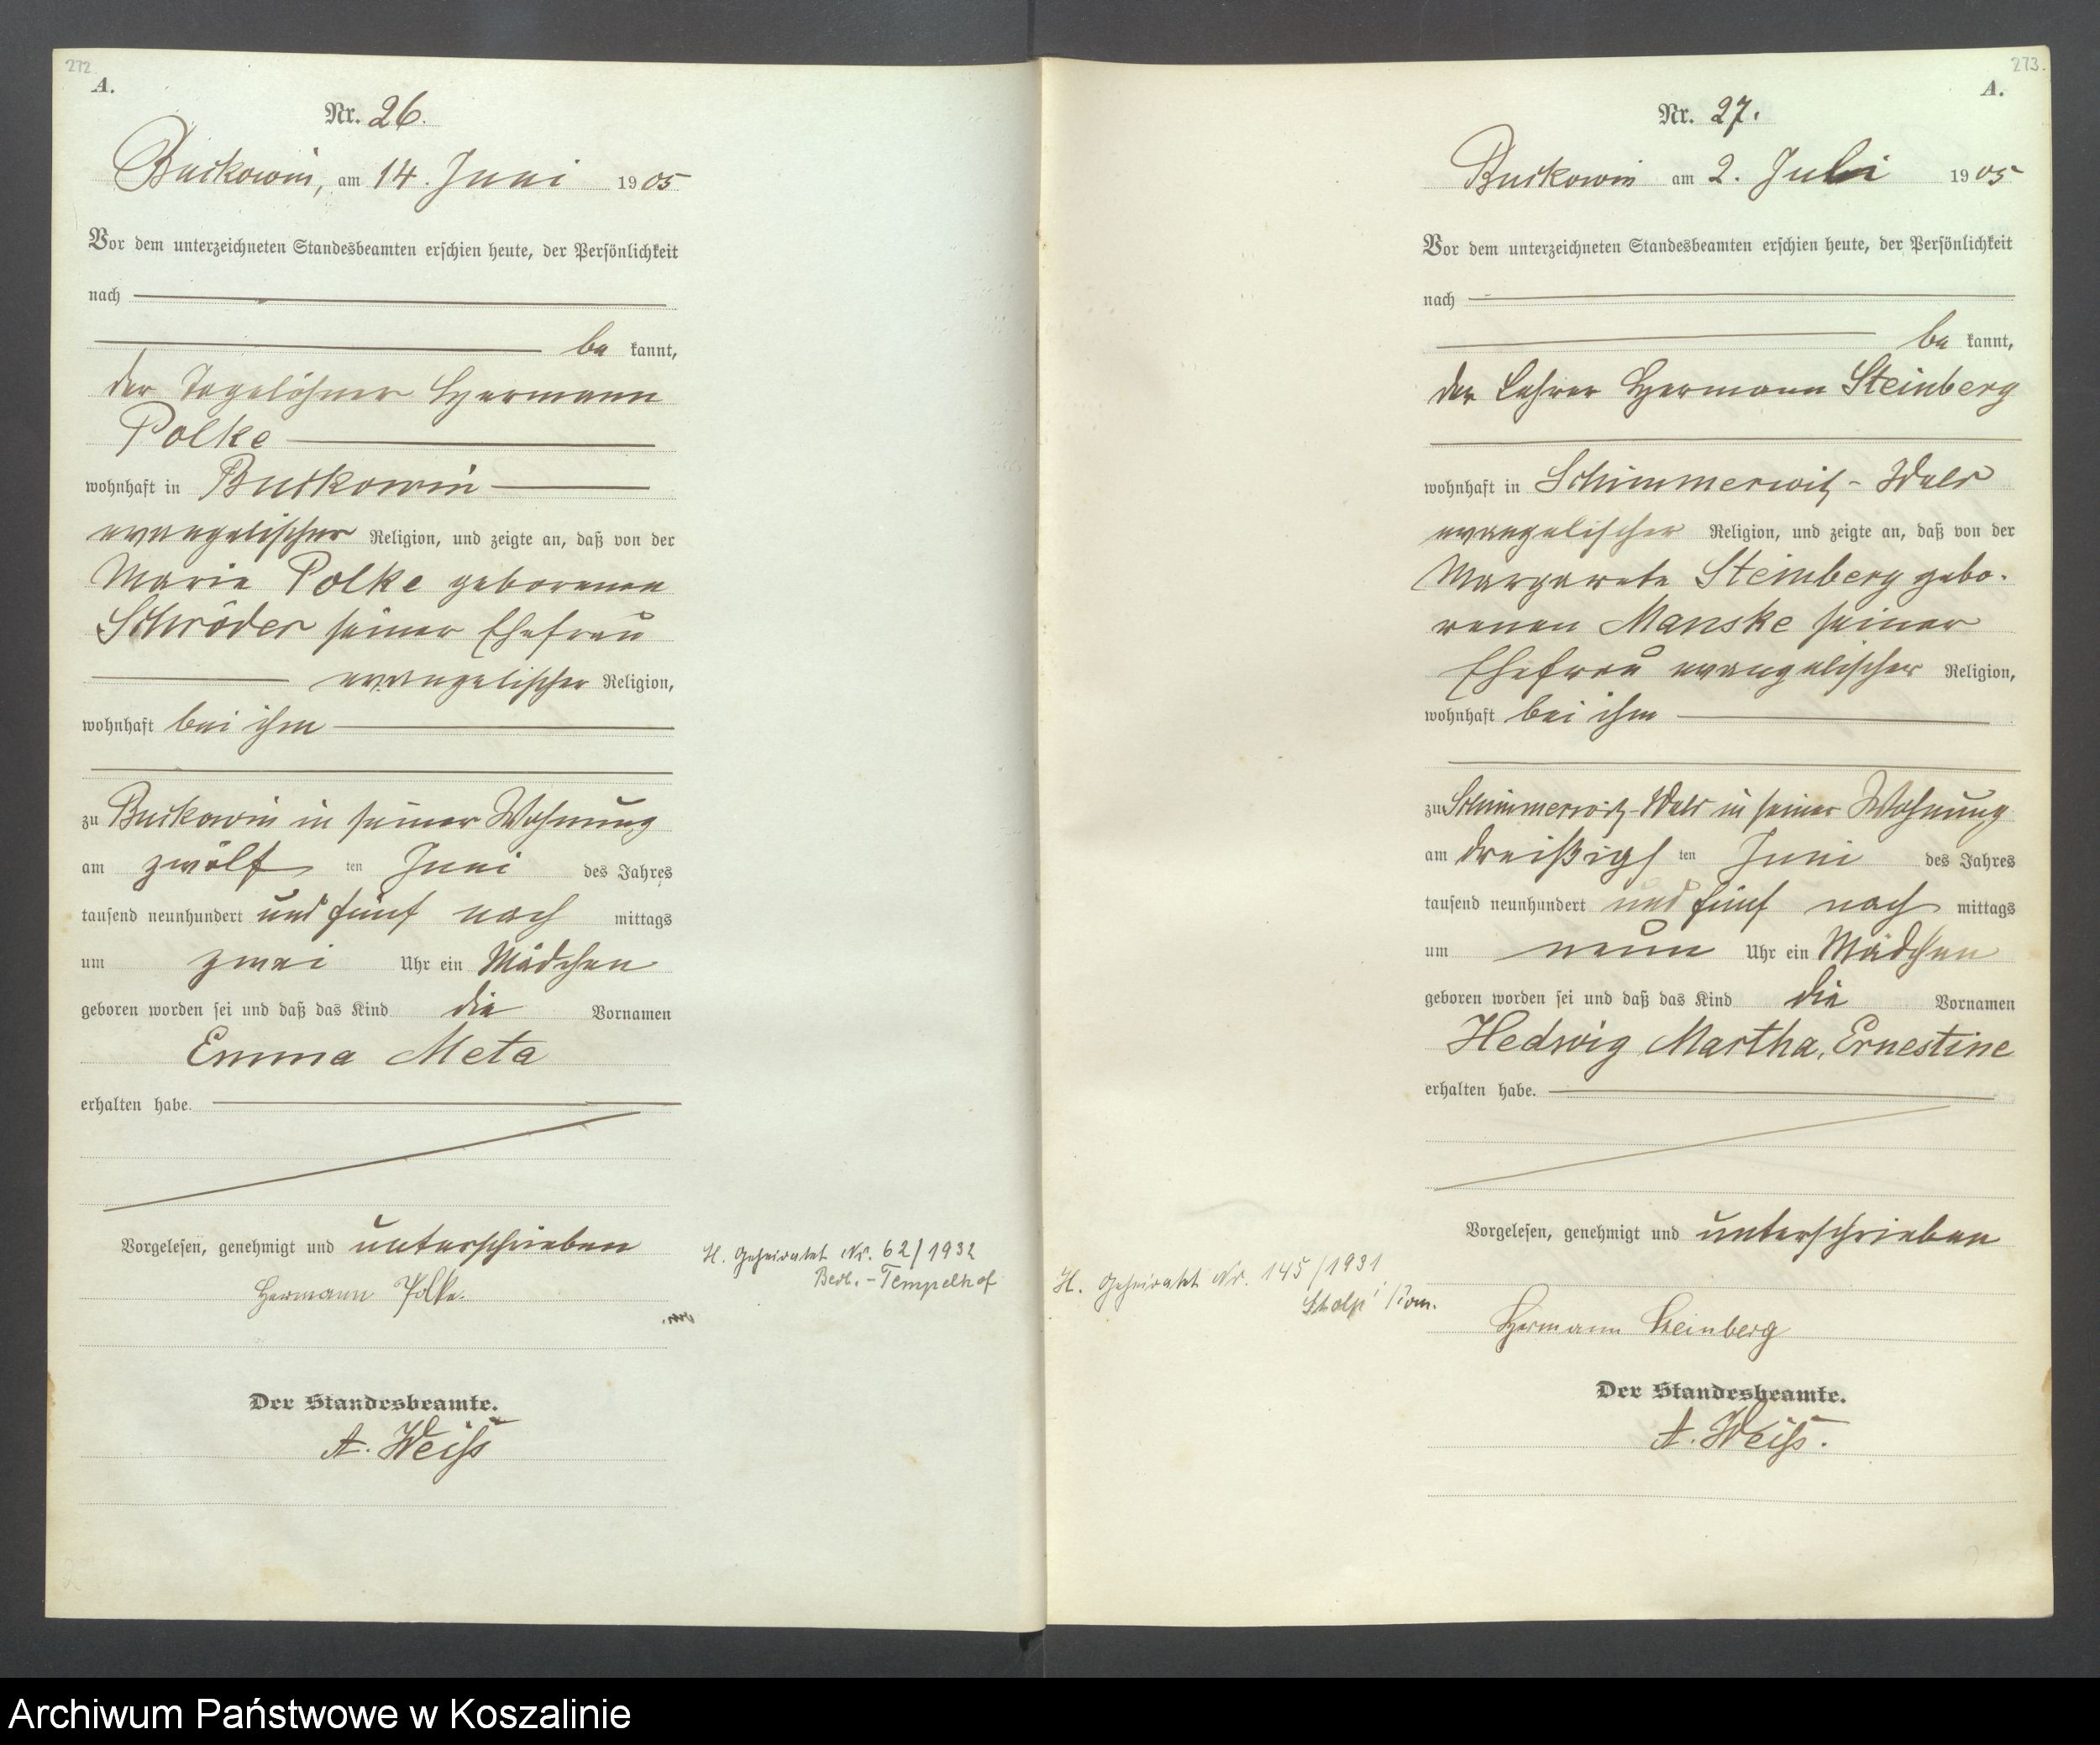 272
A.
Nr. 26.
Buckowin, am 14. Juni 1905
Vor dem unterzeichneten Standesbeamten erschien heute, der Persönlichkeit
nach
be kannt,
der Tagelöhner Hermann
Polke
wohnhaft in Buckowin
evangelischer Religion, und zeigte an, daß von der
Marie Polke geborenen
Schröder seiner Ehefrau
evangelischer Religion,
wohnhaft bei ihm
zu Buckowin in seiner Wohnung
am zwölf ten Juni des Jahres
tausend neunhundert und fünf nach mittags
um zwei Uhr ein Mädchen
geboren worden sei und daß das Kind die Vornamen
Emma Meta
erhalten habe.
Vorgelesen, genehmigt und unterschrieben
Hermann Polke.
H. Geheiratet Nr. 62/1932
Berl.-Tempelhof
Der Standesbeamte.
A. Weiß
273.
A.
Nr. 27.
Buckowin am 2. Juli 1905
Vor dem unterzeichneten Standesbeamten erschien heute, der Persönlichkeit
nach
be kannt,
der Lehrer Hermann Steinberg
wohnhaft in Schimmerwitz-Wald
evangelischer Religion, und zeigte an, daß von der
Margarete Steinberg gebo-
renen Manske seiner
Ehefrau evangelischer Religion,
wohnhaft bei ihm
zu Schimmerwitz-Wald in seiner Wohnung
am dreißigs ten Juni des Jahres
tausend neunhundert und fünf nach mittags
um neun Uhr ein Mädchen
geboren worden sei und daß das Kind die Vornamen
Hedwig Martha, Ernestine
erhalten habe.
Vorgelesen, genehmigt und unterschrieben
H. Geheiratet Nr. 145/1931
Stolp Pom.
Hermann Steinberg
Der Standesbeamte.
A. Weiß.
Archiwum Państwowe w Koszalinie